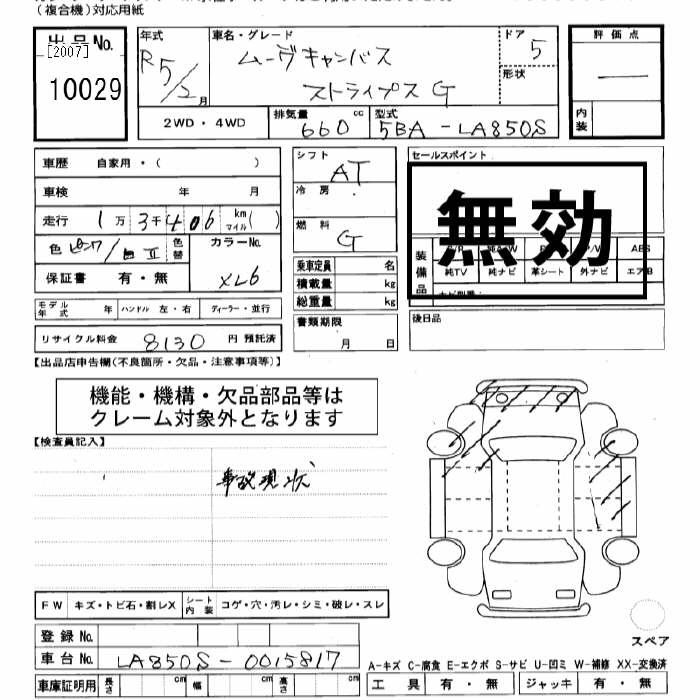 (複合機)対応用紙
出品No.
[2007]
10029
年式
R5/2月
車名・グレード
ムーヴキャンバス
ストライプス G
ドア 5
形状
評価点
—
内装
2WD・4WD
排気量 660 cc
型式 5BA-LA850S
車歴 自家用・( )
車検 年 月
走行 1万3千406 km マイル ( )
色 ピンク/白Ⅱ 色替
カラーNo.
XL6
保証書 有・無
モデル年式 年 ハンドル 左・右 ディーラー・並行
リサイクル料金 8130 円 預託済
シフト AT
冷房
燃料 G
乗車定員 名
積載量 kg
総重量 kg
書類期限
月 日
セールスポイント
無効
装備品
ABS
純TV 純ナビ 革シート 外ナビ エアB
後日品
【出品店申告欄(不良箇所・欠品・注意事項等)】
機能・機構・欠品部品等は
クレーム対象外となります
【検査員記入】
事故現状
FW キズ・トビ石・割レX シート内装 コゲ・穴・汚レ・シミ・破レ・スレ
登録No.
車台No. LA850S-0015817
車庫証明用 長さ cm 幅 cm 高さ cm
スペア
A-キズ C-腐食 E-エクボ S-サビ U-凹ミ W-補修 XX-交換済
工具 有・無 ジャッキ 有・無